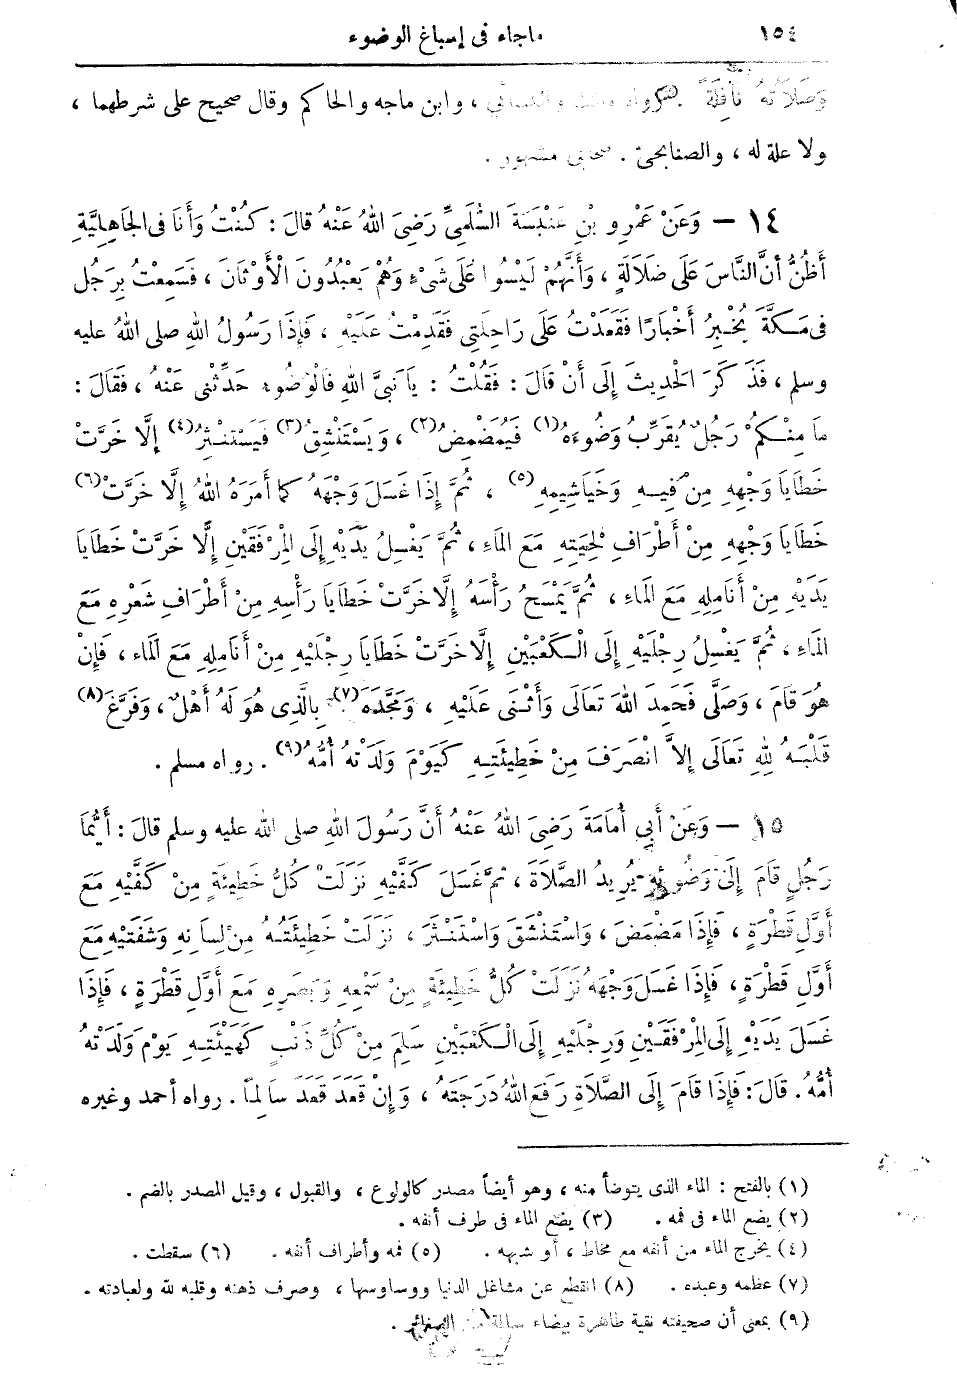 ١٥٤ ماجاء فى إسباغ الوضوء
وَصَلَاتُهُ نَافِلَةً . رواه مالك والنسائي ، وابن ماجه والحاكم وقال صحيح على شرطهما ،
ولا علة له ، والصنابحىّ . صحابى مشهور .
١٤ — وَعَنْ عَمْرِو بْنِ عَنْبَسَةَ السُّلَمِىِّ رَضِىَ اللهُ عَنْهُ قَالَ : كُنْتُ وَأَنَا فى الجَاهِلِيَّةِ
أَظُنُّ أَنَّ النَّاسَ عَلَى ضَلَالَةٍ ، وَأَنَّهُمْ لَيْسُوا عَلَى شَىْءٍ وَهُمْ يَعْبُدُونَ الْأَوْثَانَ ، فَسَمِعْتُ بِرَجُلٍ
فى مَكَّةَ يُخْبِرُ أَخْبَارًا فَقَعَدْتُ عَلَى رَاحِلَتِى فَقَدِمْتُ عَلَيْهِ ، فَإِذَا رَسُولُ اللهِ صلى اللهُ عليه
وسلم ، فَذَكَرَ الْحَدِيثَ إِلَى أَنْ قَالَ : فَقُلْتُ : يَا نَبِىَّ اللهِ فَالْوُضُوءِ حَدِّثْنِى عَنْهُ ، فَقَالَ :
مَا مِنْكُمْ رَجُلٌ يُقَرِّبُ وَضُوءَهُ (١) فَيُمَضْمِضُ (٢) ، وَيَسْتَنْشِقُ (٣) فَيَسْتَنْثِرُ (٤) إِلَّا خَرَّتْ
خَطَايَا وَجْهِهِ مِنْ فِيهِ وَخَيَاشِيمِهِ (٥) ، ثُمَّ إِذَا غَسَلَ وَجْهَهُ كَمَا أَمَرَهُ اللهُ إِلَّا خَرَّتْ (٦)
خَطَايَا وَجْهِهِ مِنْ أَطْرَافِ لِحْيَتِهِ مَعَ المَاءِ ، ثُمَّ يَغْسِلُ يَدَيْهِ إِلَى المِرْفَقَيْنِ إِلَّا خَرَّتْ خَطَايَا
يَدَيْهِ مِنْ أَنَامِلِهِ مَعَ المَاءِ ، ثُمَّ يَمْسَحُ رَأْسَهُ إِلَّا خَرَّتْ خَطَايَا رَأْسِهِ مِنْ أَطْرَافِ شَعْرِهِ مَعَ
المَاءِ ، ثُمَّ يَغْسِلُ رِجْلَيْهِ إِلَى الْكَعْبَيْنِ إِلَّا خَرَّتْ خَطَايَا رِجْلَيْهِ مِنْ أَنَامِلِهِ مَعَ المَاءِ ، فَإِنْ
هُوَ قَامَ ، وَصَلَّى فَحَمِدَ اللهَ تَعَالَى وَأَثْنَى عَلَيْهِ ، وَمَجَّدَهُ (٧) بِالَّذِى هُوَ لَهُ أَهْلٌ ، وَفَرَّغَ (٨)
قَلْبَهُ لِلهِ تَعَالَى إِلاَّ انْصَرَفَ مِنْ خَطِيئَتِهِ كَيَوْمَ وَلَدَتْهُ أُمُّهُ (٩) . رواه مسلم .
١٥ — وَعَنْ أَبِي أُمَامَةَ رَضِىَ اللهُ عَنْهُ أَنَّ رَسُولَ اللهِ صلى الله عليه وسلم قَالَ : أَيُّمَا
رَجُلٍ قَامَ إِلَى وَضُوئِهِ يُرِيدُ الصَّلَاةَ ، ثُمَّ غَسَلَ كَفَّيْهِ نَزَلَتْ كُلُّ خَطِيئَةٍ مِنْ كَفَّيْهِ مَعَ
أَوَّلِ قَطْرَةٍ ، فَإِذَا مَضْمَضَ ، وَاسْتَنْشَقَ وَاسْتَنْثَرَ ، نَزَلَتْ خَطِيئَتُهُ مِنْ لِسَانِهِ وَشَفَتَيْهِ مَعَ
أَوَّلِ قَطْرَةٍ ، فَإِذَا غَسَلَ وَجْهَهُ نَزَلَتْ كُلُّ خَطِيئَةٍ مِنْ سَمْعِهِ وَبَصَرِهِ مَعَ أَوَّلِ قَطْرَةٍ ، فَإِذَا
غَسَلَ يَدَيْهِ إِلَى المِرْفَقَيْنِ وَرِجْلَيْهِ إِلَى الْكَعْبَيْنِ سَلِمَ مِنْ كُلِّ ذَنْبٍ كَهَيْئَتِهِ يَوْمَ وَلَدَتْهُ
أُمُّهُ . قَالَ : فَإِذَا قَامَ إِلَى الصَّلَاةِ رَفَعَ اللهُ دَرَجَتَهُ ، وَإِنْ قَعَدَ قَعَدَ سَالِمًا . رواه أحمد وغيره
(١) بالفتح : الماء الذى يتوضأ منه ، وهو أيضاً مصدر كالولوع ، والقبول ، وقيل المصدر بالضم .
(٢) يضع الماء فى فمه . (٣) يضع الماء فى طرف أنفه .
(٤) يخرج الماء من أنفه مع مخاط ، أو شبهه . (٥) فمه وأطراف أنفه . (٦) سقطت .
(٧) عظمه وعبده . (٨) انقطع عن مشاغل الدنيا ووساوسها ، وصرف ذهنه وقلبه لله ولعبادته .
(٩) بمعنى أن صحيفته نقية طاهرة بيضاء سالمة من الصغائر .